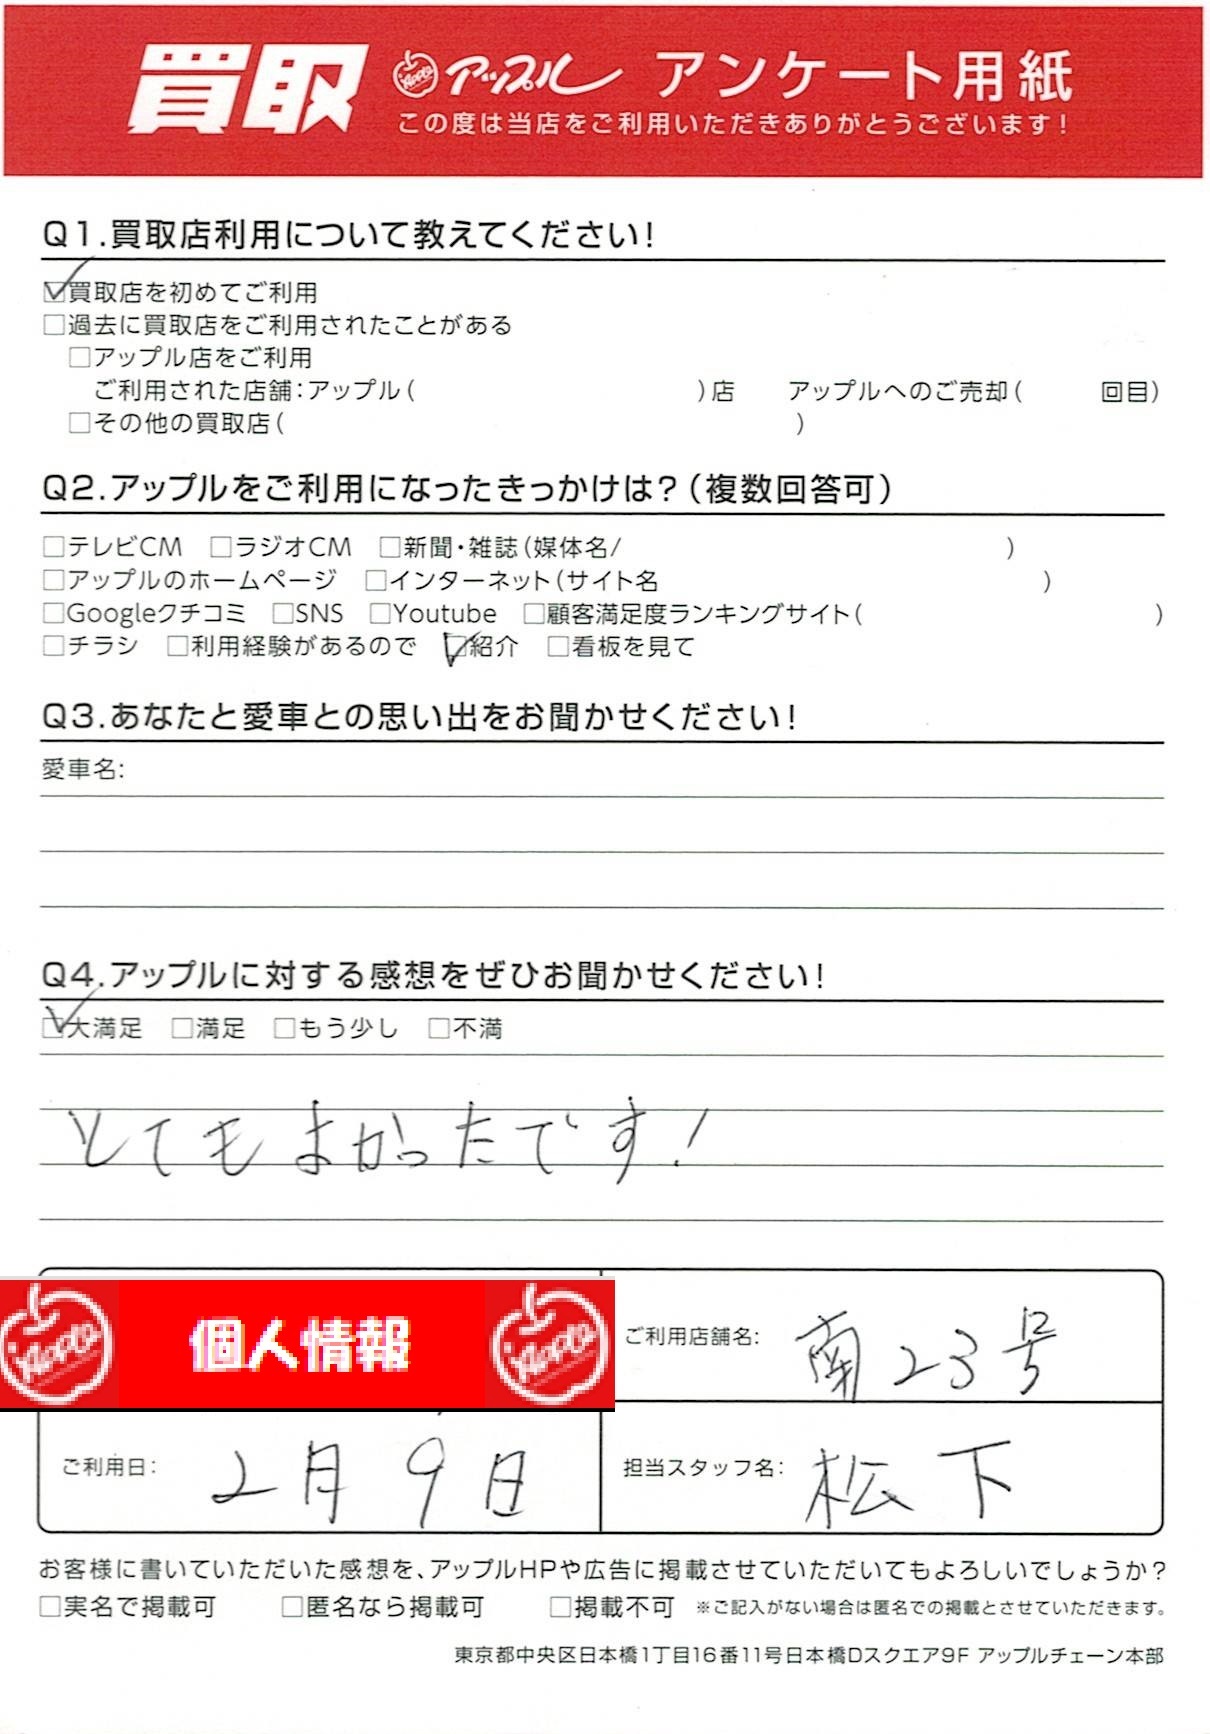 買取 Apple アップル アンケート用紙
この度は当店をご利用いただきありがとうございます!
Q1.買取店利用について教えてください!
☑買取店を初めてご利用
□過去に買取店をご利用されたことがある
□アップル店をご利用
ご利用された店舗:アップル( )店 アップルへのご売却( 回目)
□その他の買取店( )
Q2.アップルをご利用になったきっかけは?(複数回答可)
□テレビCM □ラジオCM □新聞・雑誌(媒体名/ )
□アップルのホームページ □インターネット(サイト名 )
□Googleクチコミ □SNS □Youtube □顧客満足度ランキングサイト( )
□チラシ □利用経験があるので ☑紹介 □看板を見て
Q3.あなたと愛車との思い出をお聞かせください!
愛車名:
Q4.アップルに対する感想をぜひお聞かせください!
☑大満足 □満足 □もう少し □不満
とてもよかったです!
Apple 個人情報 Apple
ご利用店舗名: 南23号
ご利用日: 2月9日
担当スタッフ名: 松下
お客様に書いていただいた感想を、アップルHPや広告に掲載させていただいてもよろしいでしょうか?
□実名で掲載可 □匿名なら掲載可 □掲載不可 ※ご記入がない場合は匿名での掲載とさせていただきます。
東京都中央区日本橋1丁目16番11号日本橋Dスクエア9F アップルチェーン本部